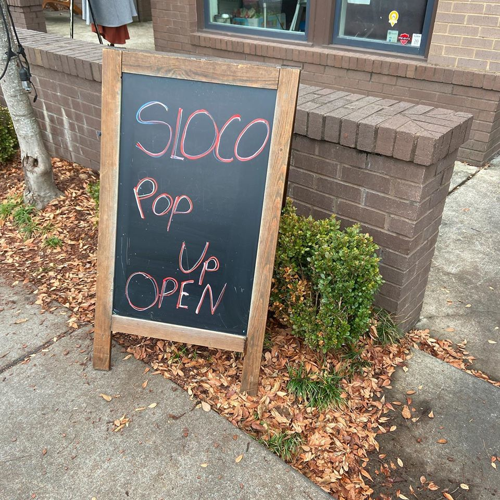 SLOCO
Pop
Up
OPEN